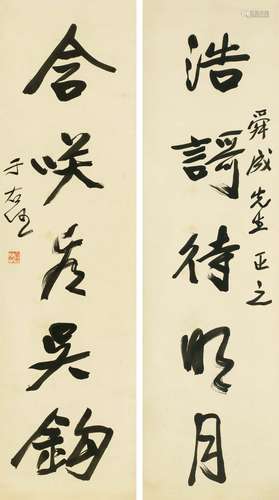 舜成先生正之
浩謌待明月
含咲看吳鉤
于右任